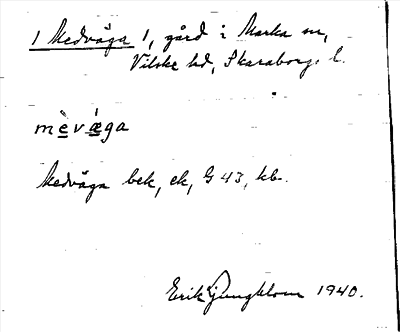 1 Medväga 1, gård i Marka sn,
Vilske hd, Skaraborgs l.
mèvǽga
Medväga bek, ek, G 43, kb.
Erik Ljungblom 1940.